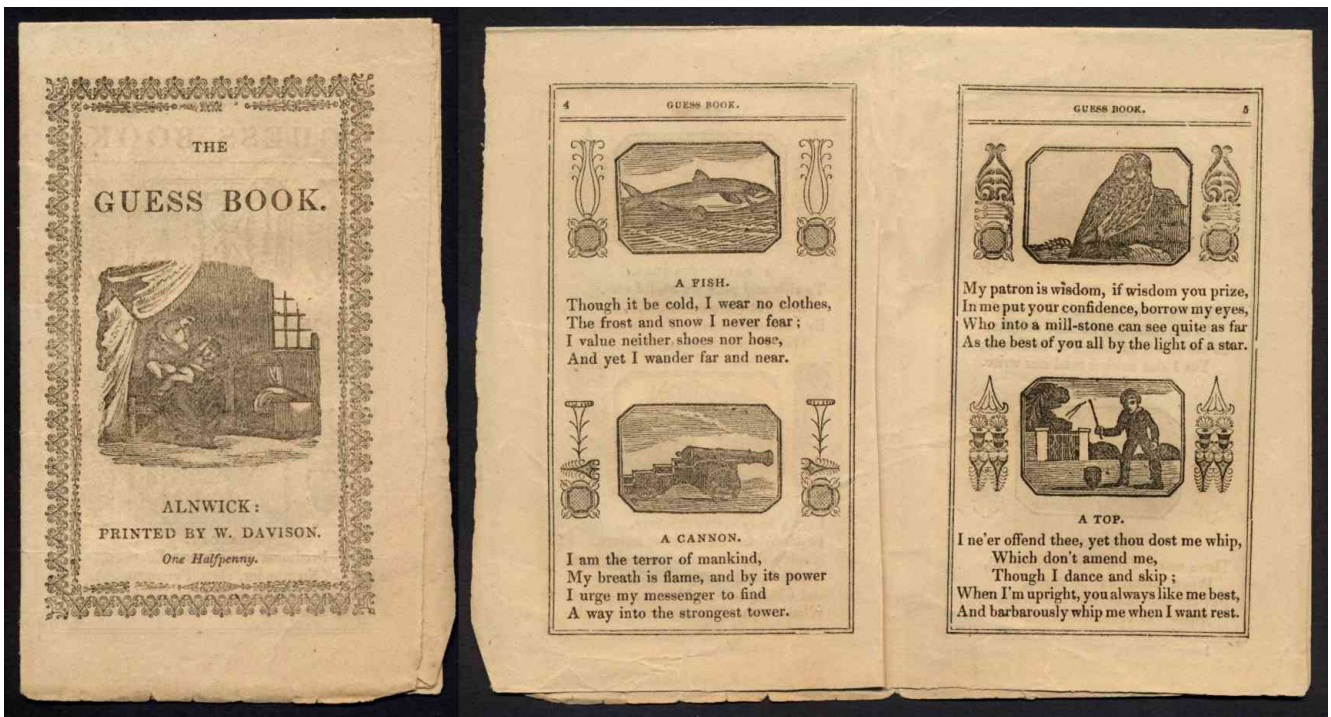 THE
GUESS BOOK.
ALNWICK:
PRINTED BY W. DAVISON.
One Halfpenny.
4 GUESS BOOK.
A FISH.
Though it be cold, I wear no clothes,
The frost and snow I never fear;
I value neither shoes nor hose,
And yet I wander far and near.
A CANNON.
I am the terror of mankind,
My breath is flame, and by its power
I urge my messenger to find
A way into the strongest tower.
GUESS BOOK. 5
My patron is wisdom, if wisdom you prize,
In me put your confidence, borrow my eyes,
Who into a mill-stone can see quite as far
As the best of you all by the light of a star.
A TOP.
I ne'er offend thee, yet thou dost me whip,
Which don't amend me,
Though I dance and skip;
When I'm upright, you always like me best,
And barbarously whip me when I want rest.